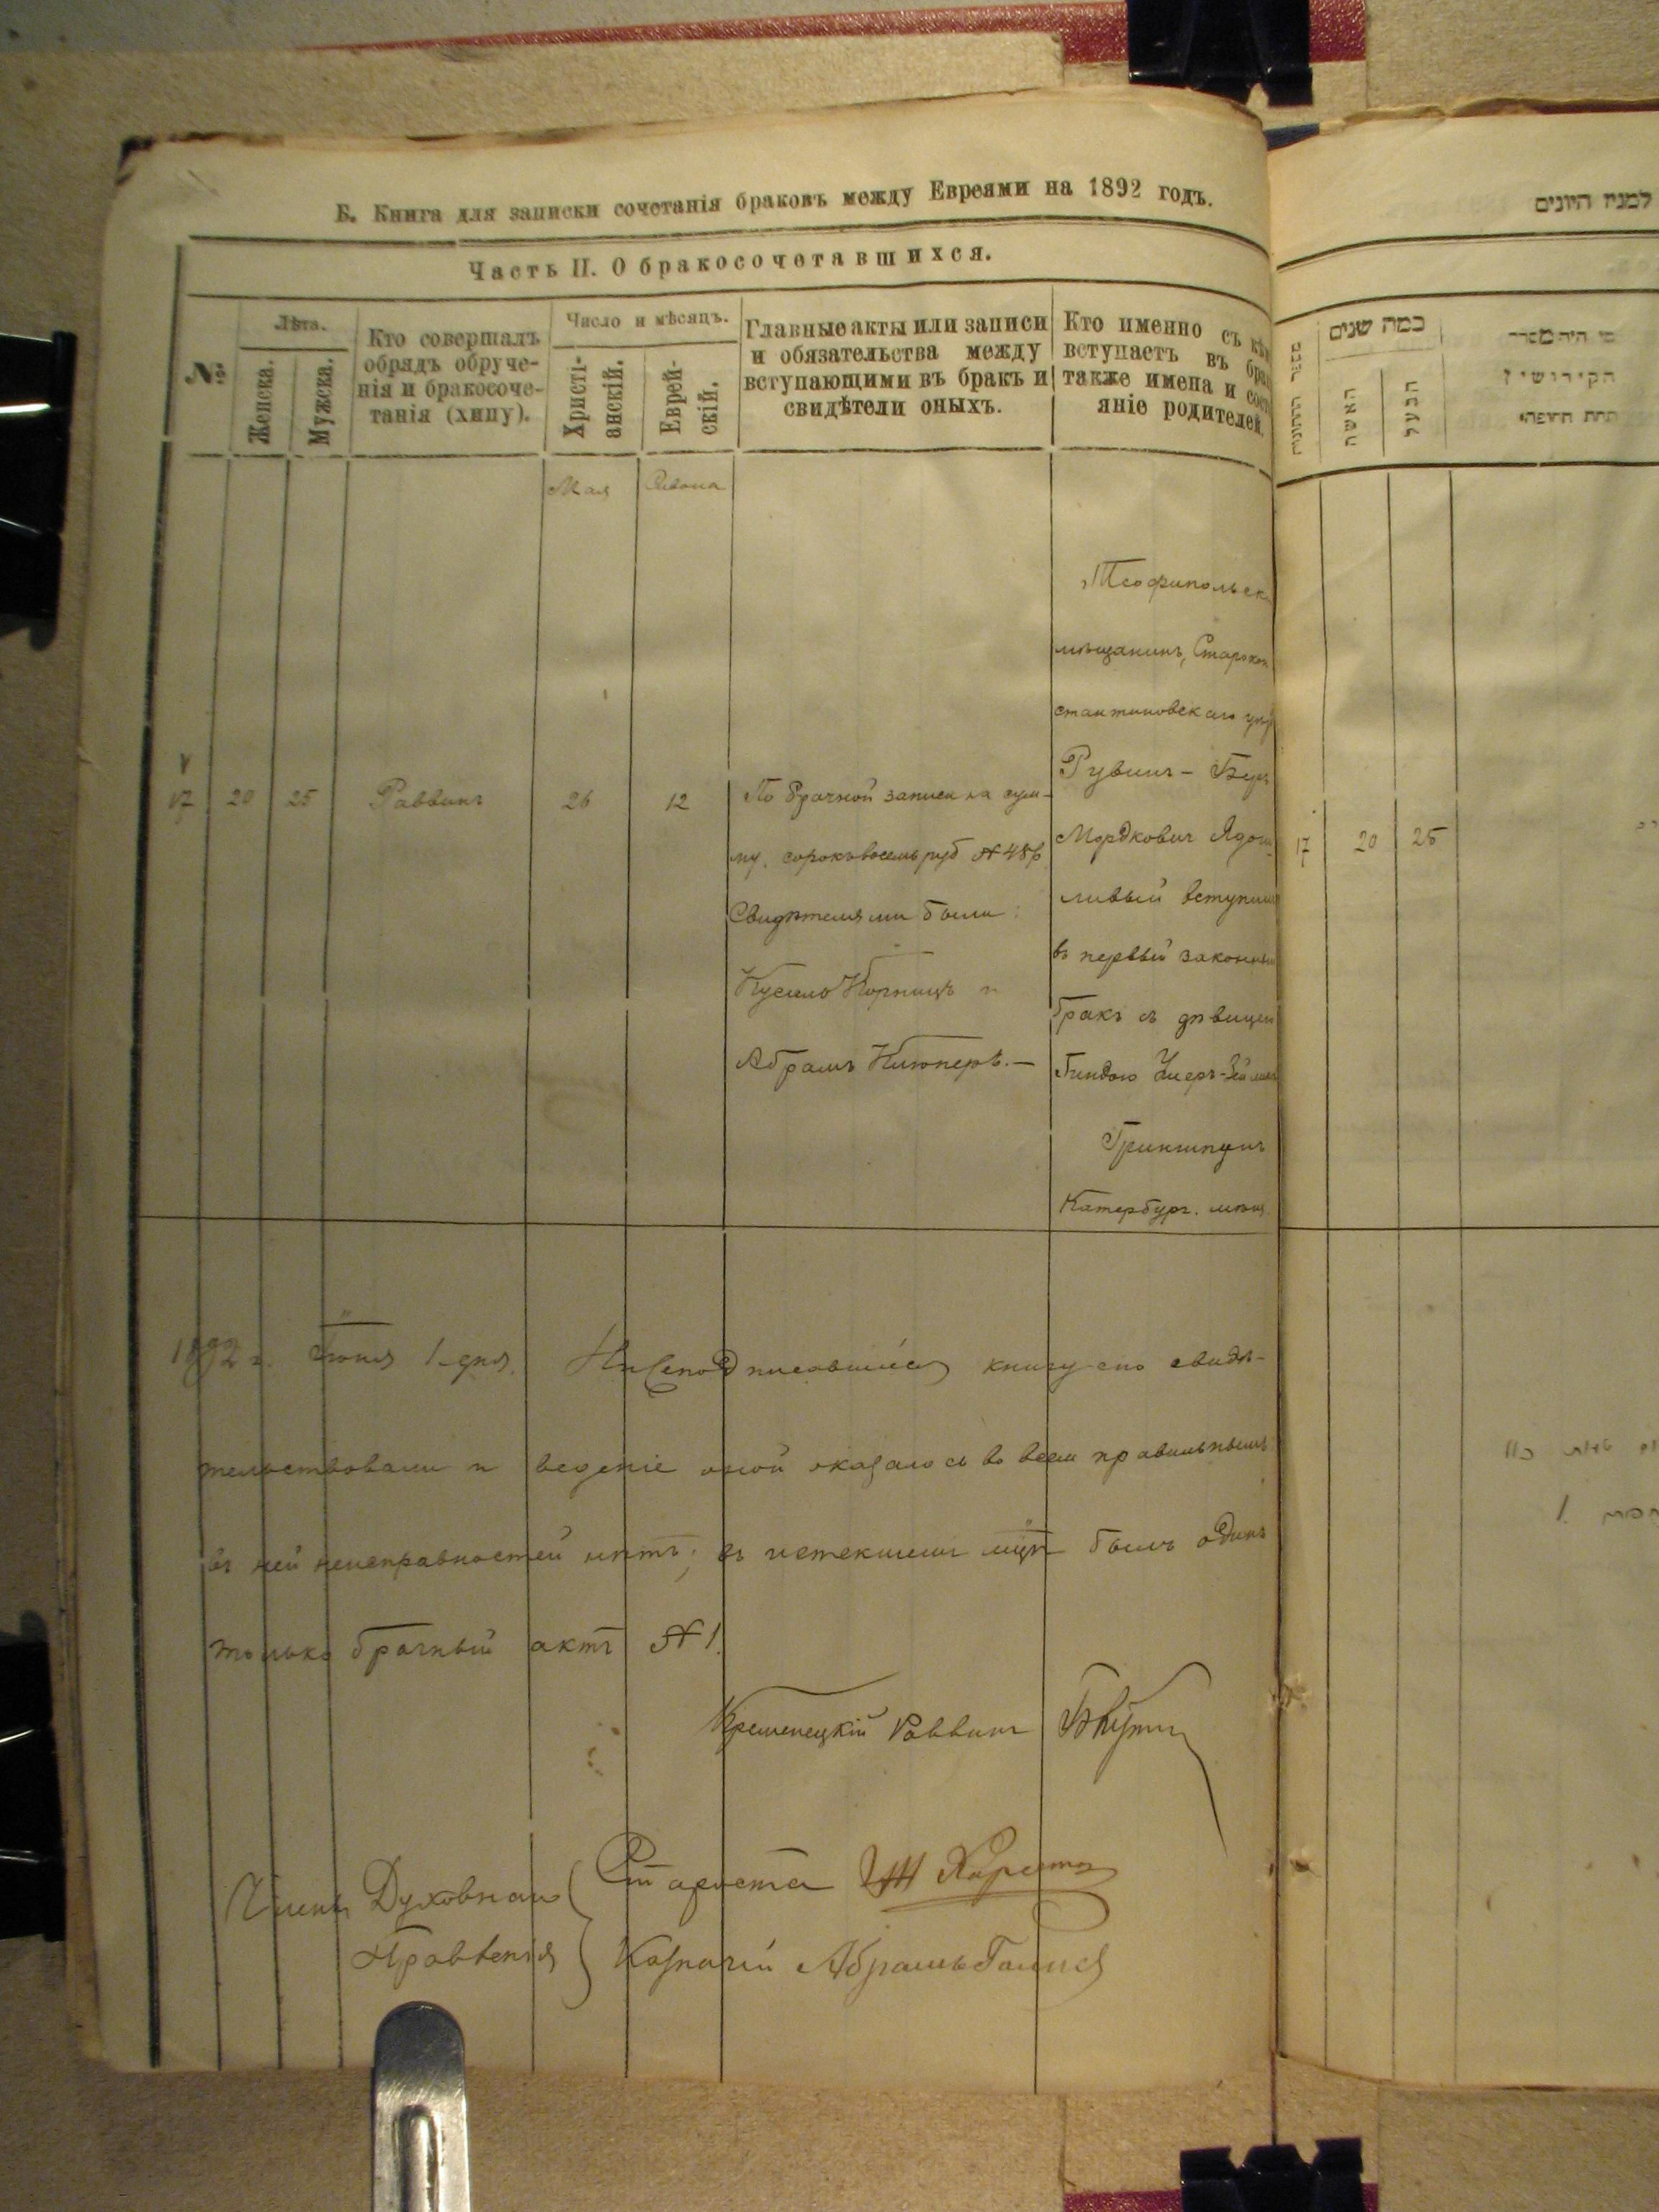 Б. Книга для записки сочетанія браковъ между Евреями на 1892 годъ.
Часть II. О бракосочетавшихся.
№
Лѣта.
Женска.
Мужска.
Кто совершалъ
обрядъ обруче-
нія и бракосоче-
танія (хипу).
Число и мѣсяцъ.
Христі-
анскій.
Еврей-
скій.
Главные акты или записи
и обязательства между
вступающими въ бракъ и
свидѣтели оныхъ.
Кто именно съ кѣм
вступаетъ въ брак
также имена и сос
яніе родителей.
Мая
Сивона
17 20 25 Раввинъ 26 12
По брачной записи на сум-
му, сорокъ восемь руб № 48 р.
Свидѣтелями были:
Абрамъ
Теофипольск
мѣщанинъ, Старокон
стантиновскаго уѣз
Рувинъ - Беръ
Мордковичъ Ядош
ливый вступил
въ первый законный
бракъ съ дѣвицей
Гриншпунъ
Катербург. мѣщ.
1892 г. Іюня 1 дня. Нижеподписавшіеся книгу сію свидѣ-
тельствовали и веденіе оной оказалось во всем правильнымъ
въ ней неисправностей нѣтъ; въ истекшемъ мцѣ былъ одинъ
только брачный актъ № 1.
Кременецкій Раввинъ
Члены Духовнаго
Правленія
Староста
Казначій Абрамъ
למנין היונים
כמה שנים
האשה
הבעל
מי היה מסדר
הקידושין
תחת החופה
17 20 25